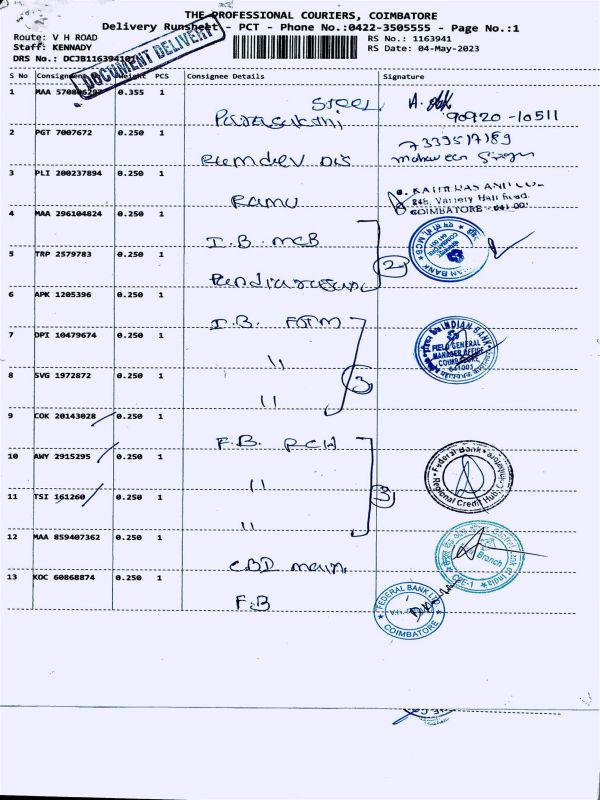 THE PROFESSIONAL COURIERS, COIMBATORE
Delivery Runsheet - PCT - Phone No.:0422-3505555 - Page No.:1
Route: V H ROAD
RS No.: 1163941
Staff: KENNADY
RS Date: 04-May-2023
DRS No.: DCJB116394101
DOCUMENT DELIVERY
S No Consignment Weight PCS Consignee Details Signature
1 MAA 570806297 0.355 1
STEEL
90920-10511
2 PGT 7007672 0.250 1
7339517189
3 PLI 200237894 0.250 1
RAMU
848, Variety Hall Road,
COIMBATORE - 641 001
4 MAA 296104824 0.250 1
I.B. MCB
5 TRP 2579783 0.250 1
2
6 APK 1205396 0.250 1
I.B. FGM
7 DPI 10479674 0.250 1
"
INDIAN BANK
FIELD GENERAL
MANAGER OFFICE
COIMBATORE
641001
8 SVG 1972872 0.250 1
"
3
9 COK 20143028 0.250 1
F.B. RCH
10 AWY 2915295 0.250 1
"
Federal Bank
Regional Credit Hub, Coimbatore
11 TSI 161260 0.250 1
"
3
12 MAA 859407362 0.250 1
CBI main
Branch
CBE-1
13 KOC 60868874 0.250 1
F.B
FEDERAL BANK LTD
COIMBATORE